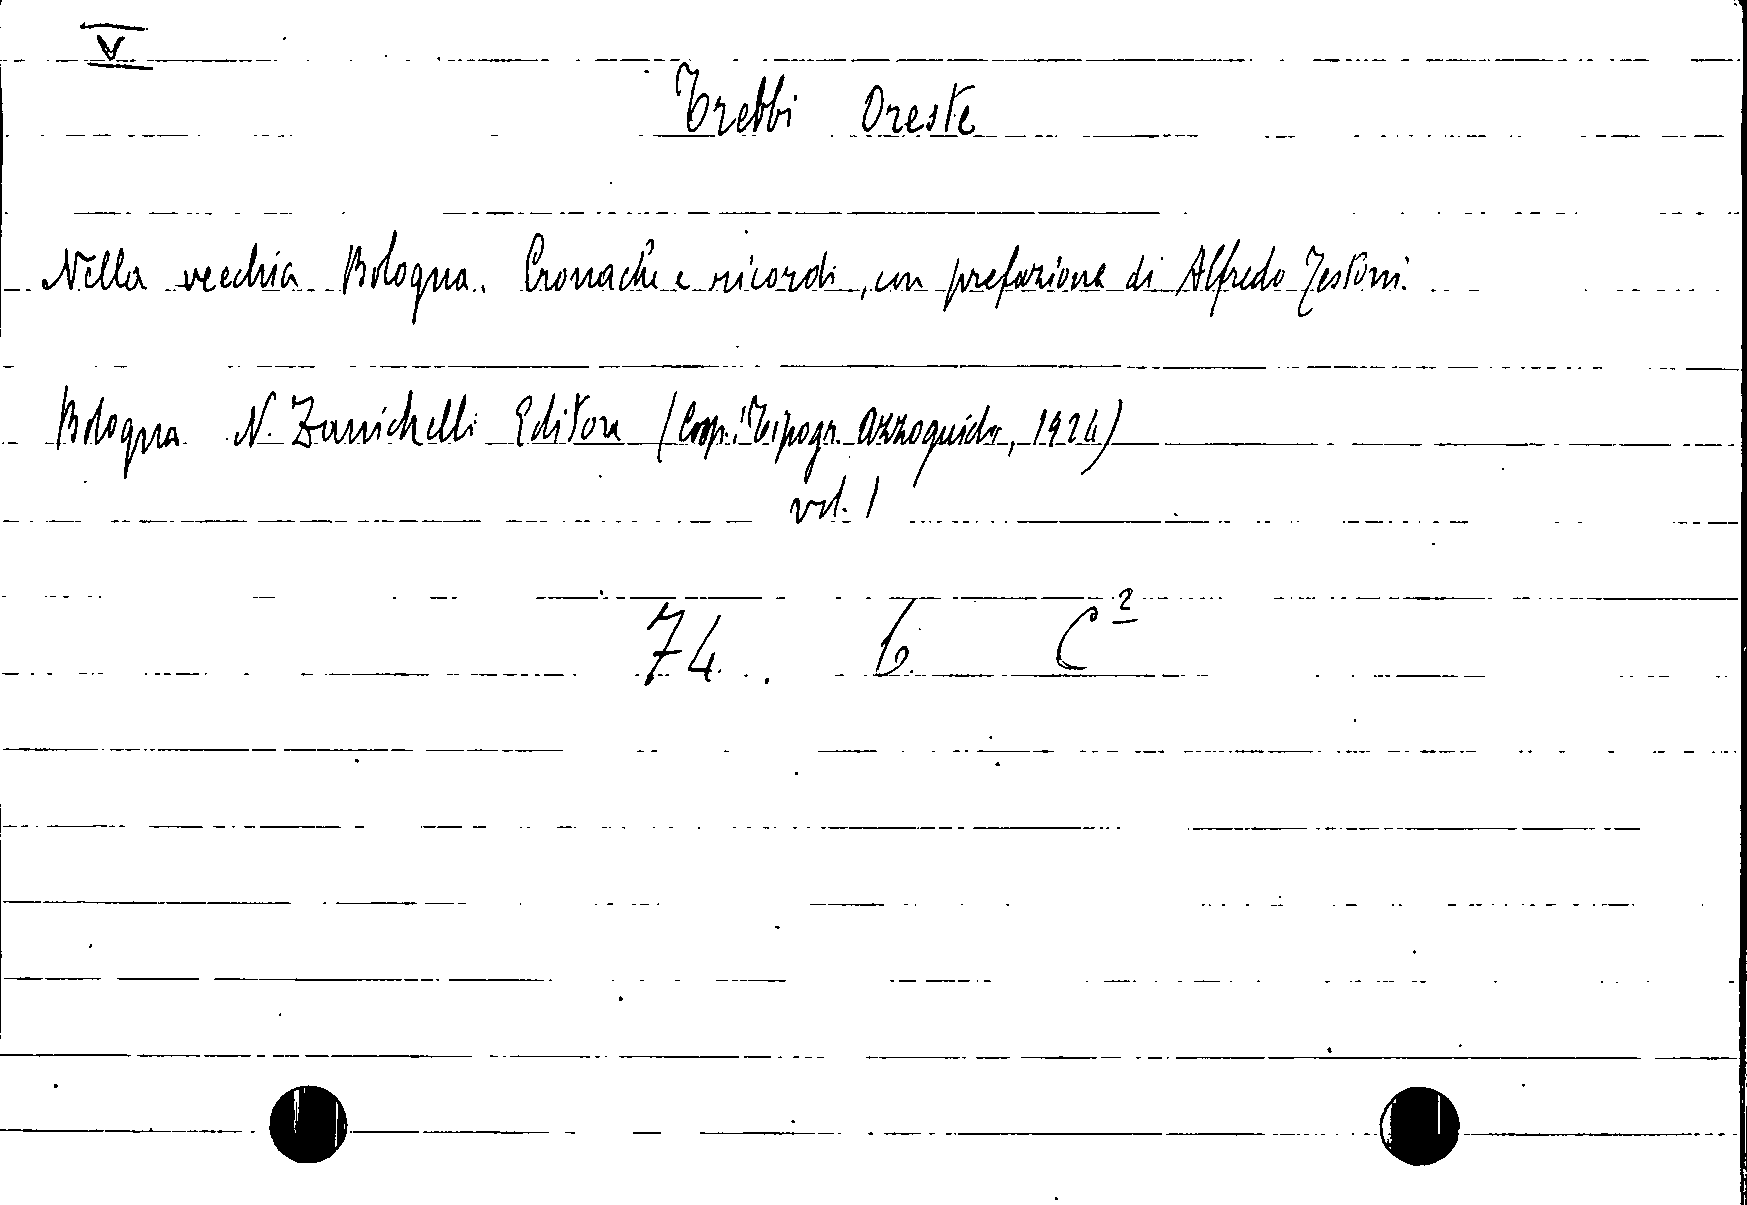 V
Trebbi Oreste
Nella vecchia Bologna. Cronache e ricordi, con prefazione di Alfredo Testoni.
Bologna N. Zanichelli Editore (Coop. Tipogr. Azzoguidi, 1924)
vol. 1
74. 6 C²